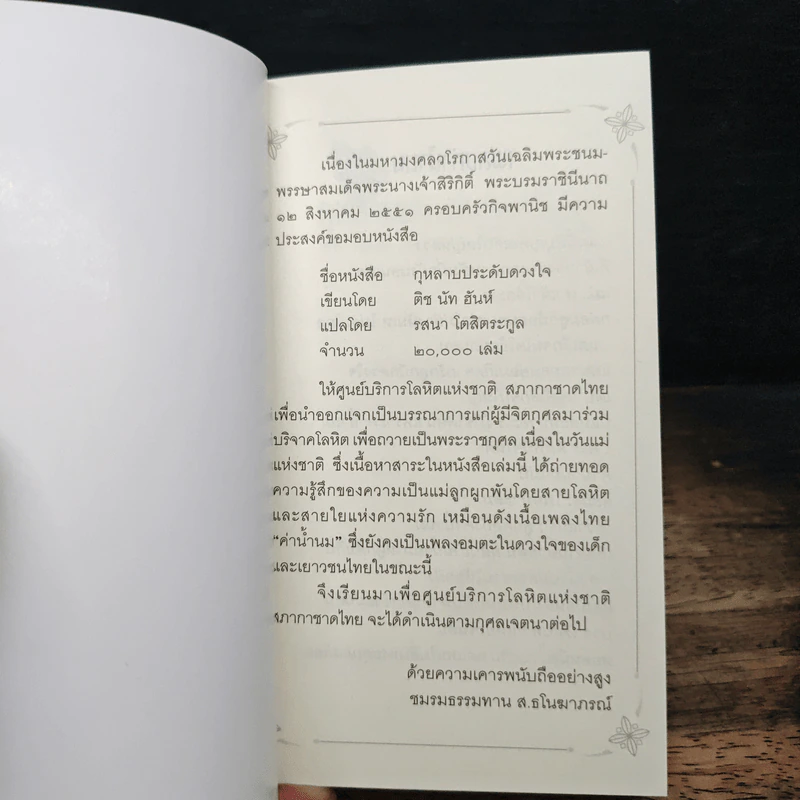 เนื่องในมหามงคลวโรกาสวันเฉลิมพระชนม-
พรรษาสมเด็จพระนางเจ้าสิริกิติ์ พระบรมราชินีนาถ
๑๒ สิงหาคม ๒๕๕๑ ครอบครัวกิจพานิช มีความ
ประสงค์ขอมอบหนังสือ
ชื่อหนังสือ กุหลาบประดับดวงใจ
เขียนโดย ติช นัท ฮันห์
แปลโดย รสนา โตสิตระกูล
จำนวน ๒๐,๐๐๐ เล่ม
ให้ศูนย์บริการโลหิตแห่งชาติ สภากาชาดไทย
เพื่อนำออกแจกเป็นบรรณาการแก่ผู้มีจิตกุศลมาร่วม
บริจาคโลหิต เพื่อถวายเป็นพระราชกุศล เนื่องในวันแม่
แห่งชาติ ซึ่งเนื้อหาสาระในหนังสือเล่มนี้ ได้ถ่ายทอด
ความรู้สึกของความเป็นแม่ลูกผูกพันโดยสายโลหิต
และสายใยแห่งความรัก เหมือนดังเนื้อเพลงไทย
“ค่าน้ำนม” ซึ่งยังคงเป็นเพลงอมตะในดวงใจของเด็ก
และเยาวชนไทยในขณะนี้
จึงเรียนมาเพื่อศูนย์บริการโลหิตแห่งชาติ
สภากาชาดไทย จะได้ดำเนินตามกุศลเจตนาต่อไป
ด้วยความเคารพนับถืออย่างสูง
ชมรมธรรมทาน ส.ธโนฆาภรณ์